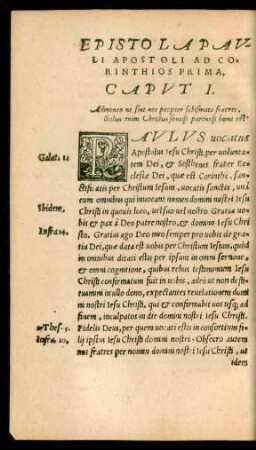 EPISTOLA PAV
LI APOSTOLI AD CO-
RINTHIOS PRIMA.
CAPVT I.
Admonen ne sint nos propter schismata fratres,
Solus enim Christus
PAVLVS uocatus
Galat. 1.
Apostolus Iesu Christi, per uolunta
tem Dei, & Sosthenes frater Ec
clesiæ Dei, quæ est Corinthi, san-
ctificatis per Christum Iesum, uocatis sanctis, uni
cum omnibus qui inuocant nomen domini nostri Ie
Ibidem.
su Christi in quouis loco, uel suo uel nostro. Gratia uo
bis & pax à Deo patre nostro, & domino Iesu Chri
Infra 14.
sto. Gratias ago Deo meo semper pro uobis de gra
tia Dei, quæ data est uobis per Christum Iesum, quod
in omnibus ditati estis per ipsum in omni sermone,
& omni cognitione, quibus rebus testimonium Iesu
Christi confirmatum fuit in uobis, adeò ut non desti
tuamini in ullo dono, expectantes reuelationem domi
ni nostri Iesu Christi, qui & confirmabit uos usq; ad
finem, inculpatos in die domini nostri Iesu Christi.
1. Thes. 5.
Fidelis Deus, per quem uocati estis in consortium fi-
Infra. 10.
lij ipsius Iesu Christi domini nostri. Obsecro autem
uos fratres per nomen domini nostri Iesu Christi, ut
idem